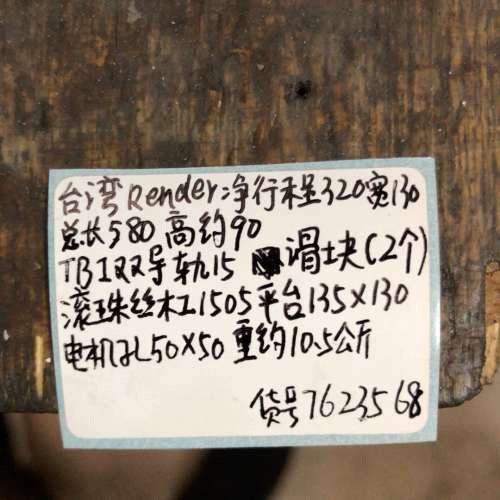 台湾Render:净行程320宽130
总长580高约90
TBI双导轨15 滑块(2个)
滚珠丝杠1505平台135X130
电机孔50X50重约10.5公斤
货号7623568